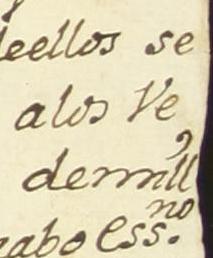 deellos se
alos Ve
demill
zabo Ess.no